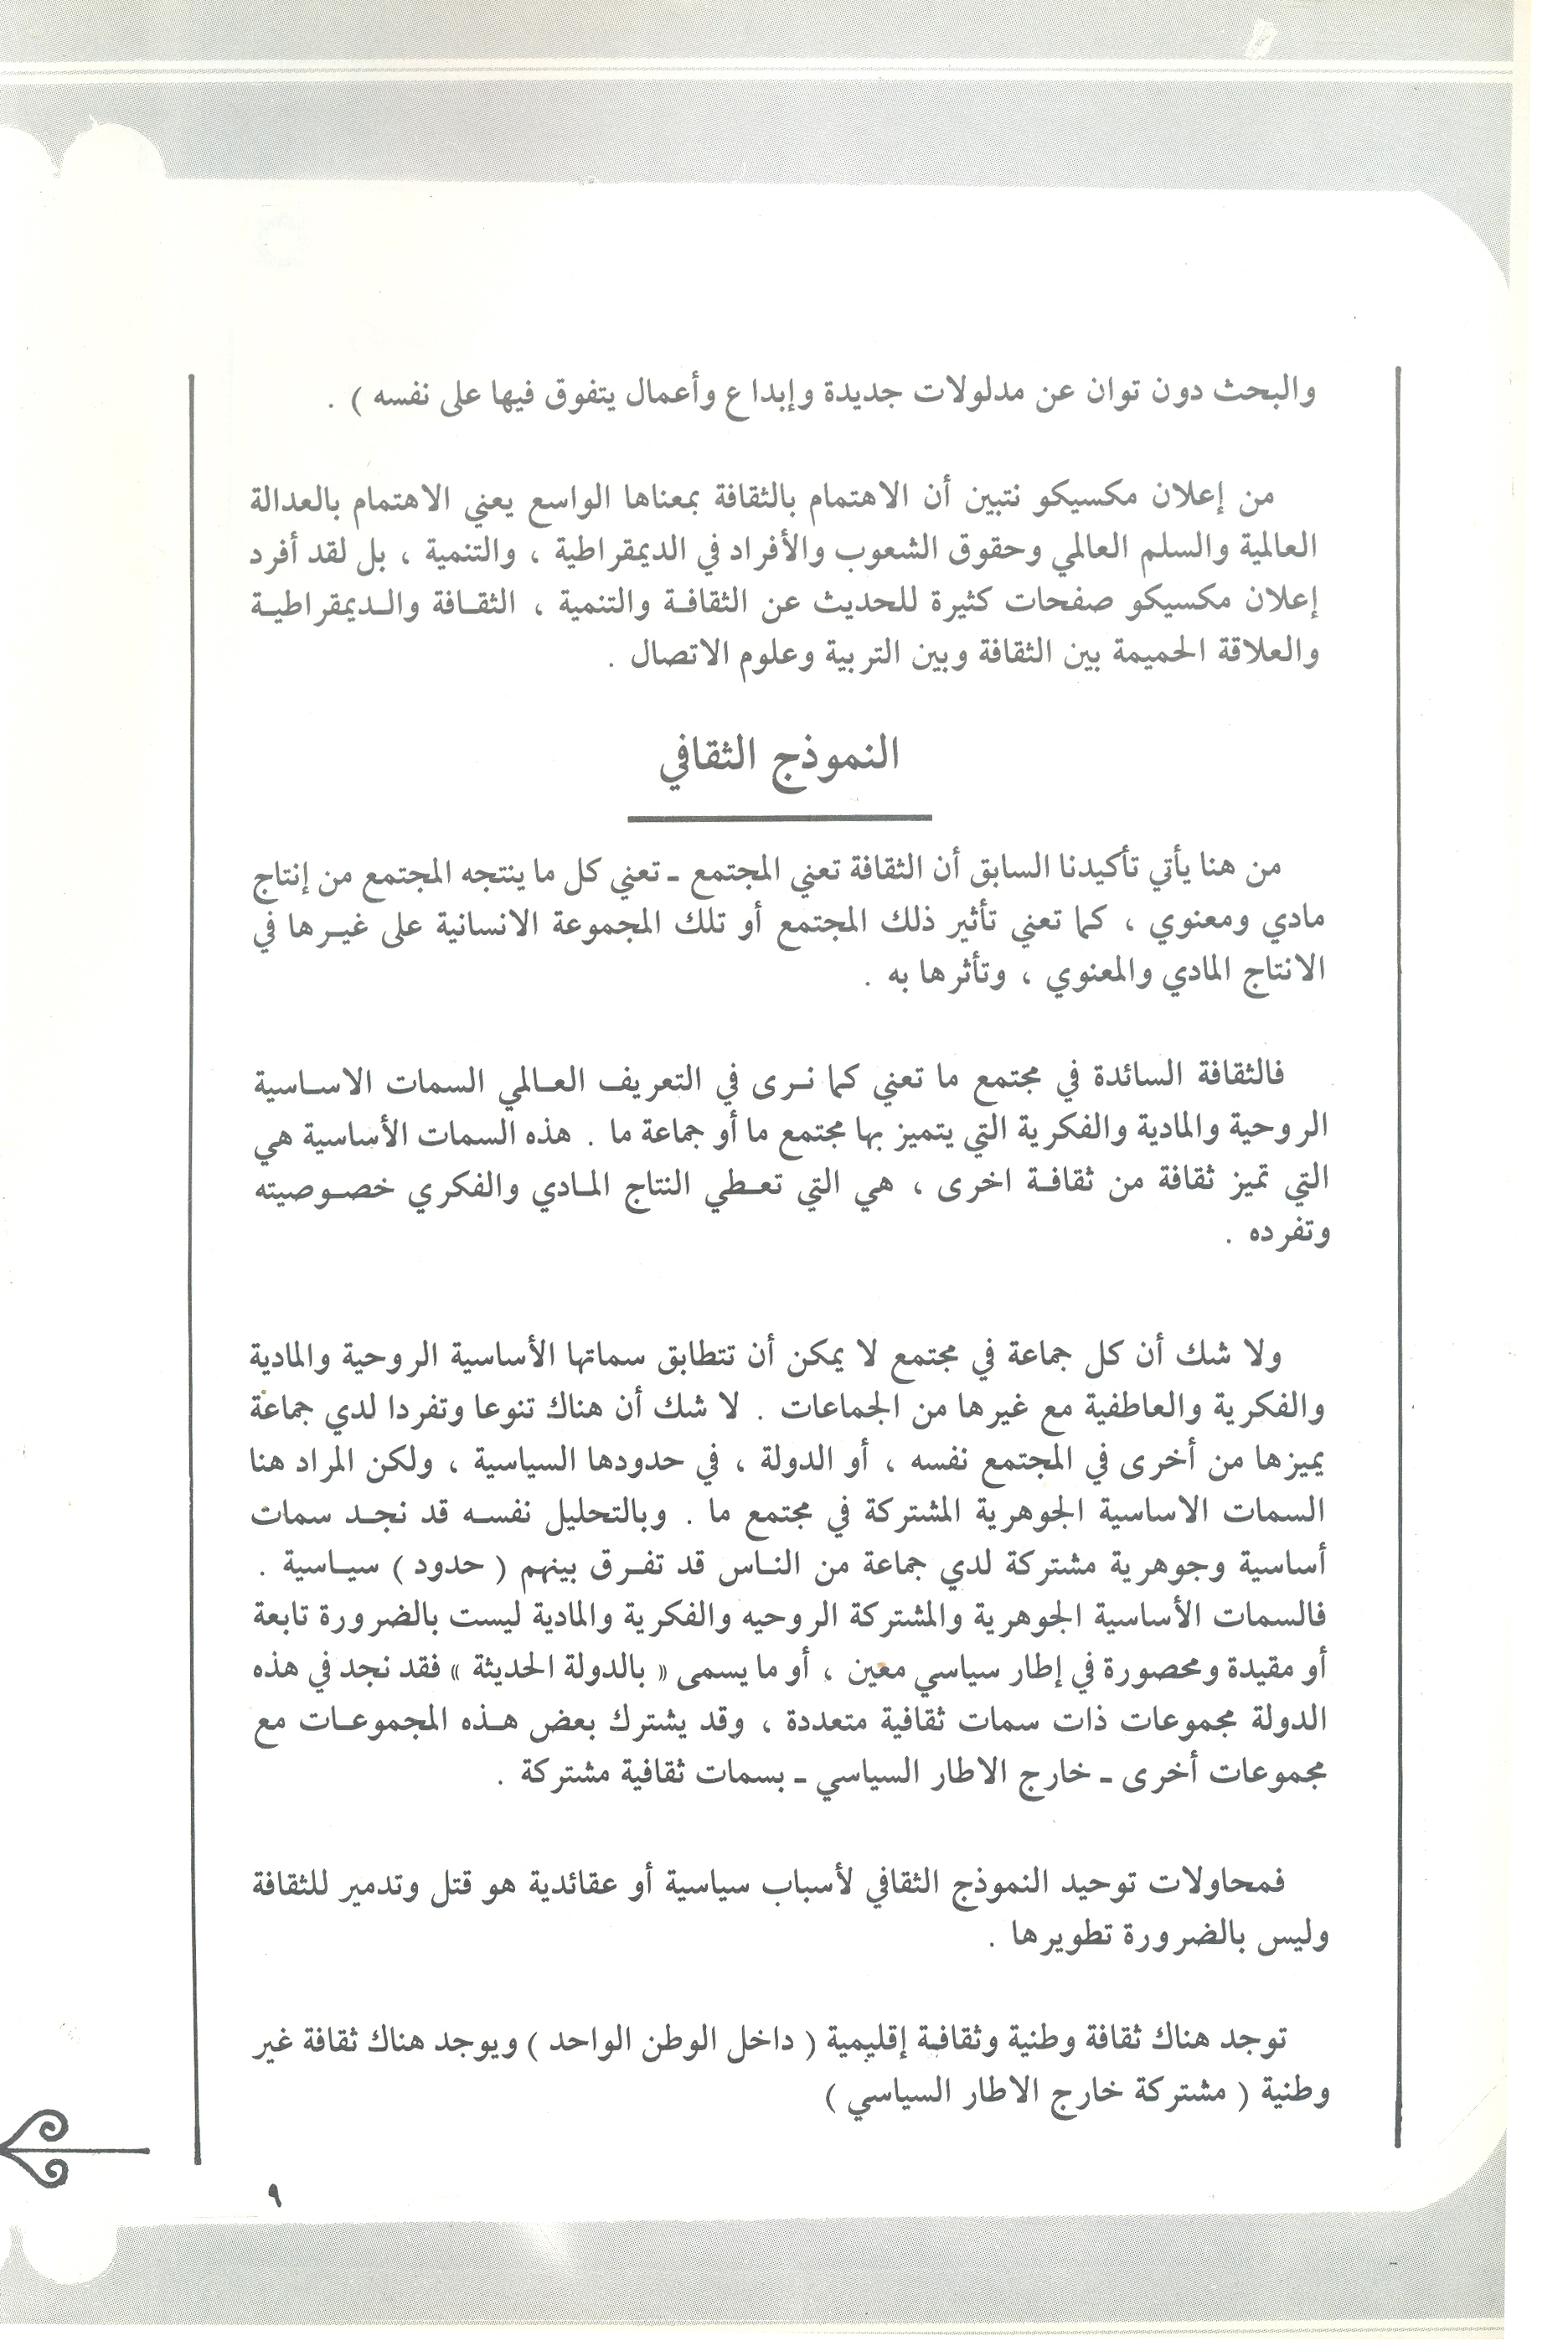 والبحث دون توان عن مدلولات جديدة وإبداع وأعمال يتفوق فيها على نفسه ) .
من إعلان مكسيكو نتبين أن الاهتمام بالثقافة بمعناها الواسع يعني الاهتمام بالعدالة
العالمية والسلم العالمي وحقوق الشعوب والأفراد في الديمقراطية ، والتنمية ، بل لقد أفرد
إعلان مكسيكو صفحات كثيرة للحديث عن الثقافة والتنمية ، الثقافة والديمقراطية
والعلاقة الحميمة بين الثقافة وبين التربية وعلوم الاتصال .
النموذج الثقافي
من هنا يأتي تأكيدنا السابق أن الثقافة تعني المجتمع ـ تعني كل ما ينتجه المجتمع من إنتاج
مادي ومعنوي ، كما تعني تأثير ذلك المجتمع أو تلك المجموعة الانسانية على غيرها في
الانتاج المادي والمعنوي ، وتأثرها به .
فالثقافة السائدة في مجتمع ما تعني كما نرى في التعريف العالمي السمات الاساسية
الروحية والمادية والفكرية التي يتميز بها مجتمع ما أو جماعة ما . هذه السمات الأساسية هي
التي تميز ثقافة من ثقافة اخرى ، هي التي تعطي النتاج المادي والفكري خصوصيته
وتفرده .
ولا شك أن كل جماعة في مجتمع لا يمكن أن تتطابق سماتها الأساسية الروحية والمادية
والفكرية والعاطفية مع غيرها من الجماعات . لا شك أن هناك تنوعا وتفردا لدي جماعة
يميزها من أخرى في المجتمع نفسه ، أو الدولة ، في حدودها السياسية ، ولكن المراد هنا
السمات الاساسية الجوهرية المشتركة في مجتمع ما . وبالتحليل نفسه قد نجد سمات
أساسية وجوهرية مشتركة لدي جماعة من الناس قد تفرق بينهم ( حدود ) سياسية .
فالسمات الأساسية الجوهرية والمشتركة الروحيه والفكرية والمادية ليست بالضرورة تابعة
أو مقيدة ومحصورة في إطار سياسي معين ، أو ما يسمى « بالدولة الحديثة » فقد نجد في هذه
الدولة مجموعات ذات سمات ثقافية متعددة ، وقد يشترك بعض هذه المجموعات مع
مجموعات أخرى ـ خارج الاطار السياسي ـ بسمات ثقافية مشتركة .
فمحاولات توحيد النموذج الثقافي لأسباب سياسية أو عقائدية هو قتل وتدمير للثقافة
وليس بالضرورة تطويرها .
توجد هناك ثقافة وطنية وثقافة إقليمية ( داخل الوطن الواحد ) ويوجد هناك ثقافة غير
وطنية ( مشتركة خارج الاطار السياسي )
٩